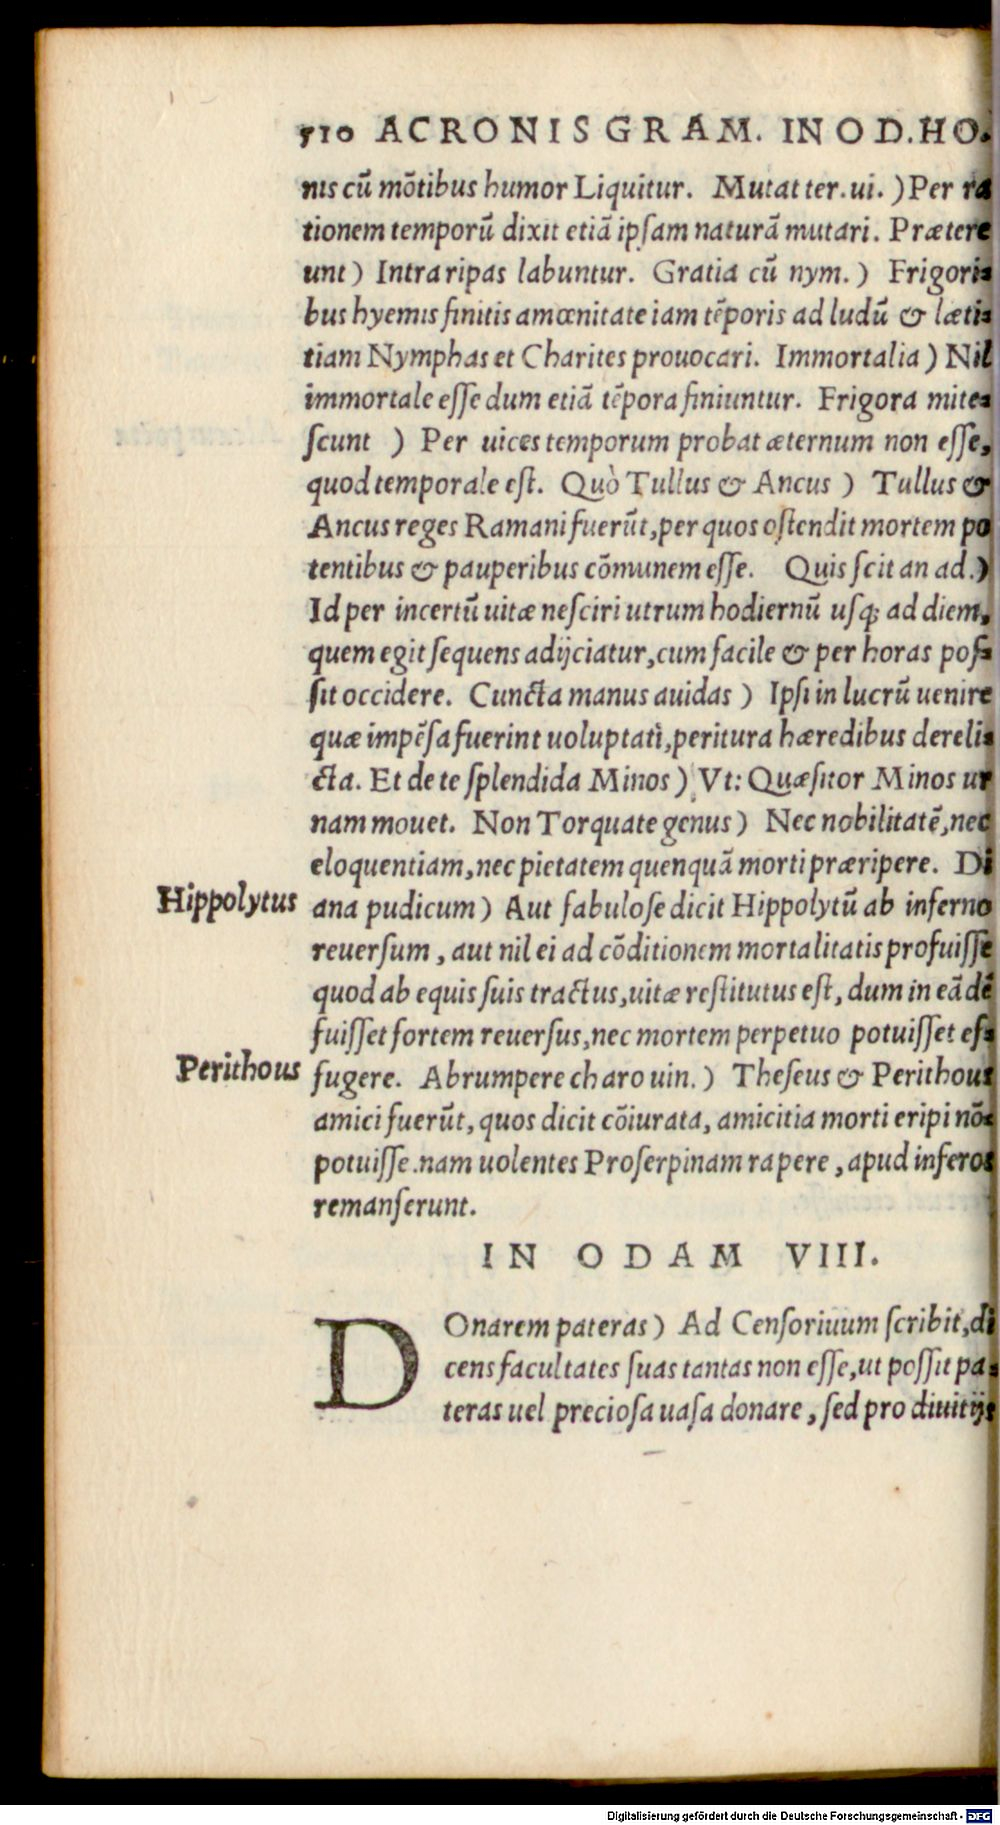 510 ACRONIS GRAM. IN OD. HO.
nis cū mōtibus humor Liquitur. Mutat ter. ui. ) Per ra
tionem temporū dixit etiā ipsam naturā mutari. Prætere
unt ) Intra ripas labuntur. Gratia cū nym. ) Frigori-
bus hyemis finitis amœnitate iam tēporis ad ludū & læti-
tiam Nymphas et Charites prouocari. Immortalia ) Nil
immortale esse dum etiā tēpora finiuntur. Frigora mite-
scunt ) Per uices temporum probat æternum non esse,
quod temporale est. Quò Tullus & Ancus ) Tullus &
Ancus reges Ramani fuerūt, per quos ostendit mortem po
tentibus & pauperibus cōmunem esse. Quis scit an ad. )
Id per incertū uitæ nesciri utrum hodiernū usq; ad diem,
quem egit sequens adijciatur, cum facile & per horas pos-
sit occidere. Cuncta manus auidas ) Ipsi in lucrū uenire
quæ impēsa fuerint uoluptati, peritura hæredibus dereli-
cta. Et de te splendida Minos ) Vt: Quæsitor Minos ur
nam mouet. Non Torquate genus ) Nec nobilitatē, nec
eloquentiam, nec pietatem quenquā morti præripere. Di
Hippolytus
ana pudicum ) Aut fabulose dicit Hippolytū ab inferno
reuersum, aut nil ei ad cōditionem mortalitatis profuisse
quod ab equis suis tractus, uitæ restitutus est, dum in eā dē
fuisset sortem reuersus, nec mortem perpetuo potuisset ef-
Perithous
fugere. Abrumpere charo uin. ) Theseus & Perithous
amici fuerūt, quos dicit cōiurata, amicitia morti eripi nō-
potuisse. nam uolentes Proserpinam rapere, apud inferos
remanserunt.
IN ODAM VIII.
DOnarem pateras ) Ad Censoriuum scribit, di
cens facultates suas tantas non esse, ut possit pa-
teras uel preciosa uasa donare, sed pro diuitijs
Digitalisierung gefördert durch die Deutsche Forschungsgemeinschaft - DFG